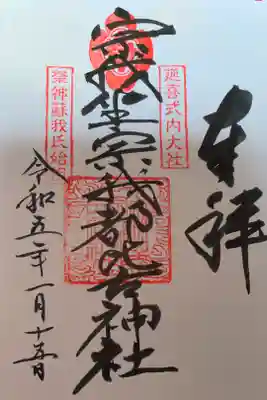 奉拝
延喜式内大社
宗我坐宗我都比古神社
祭神蘇我氏始
令和五年一月十五日